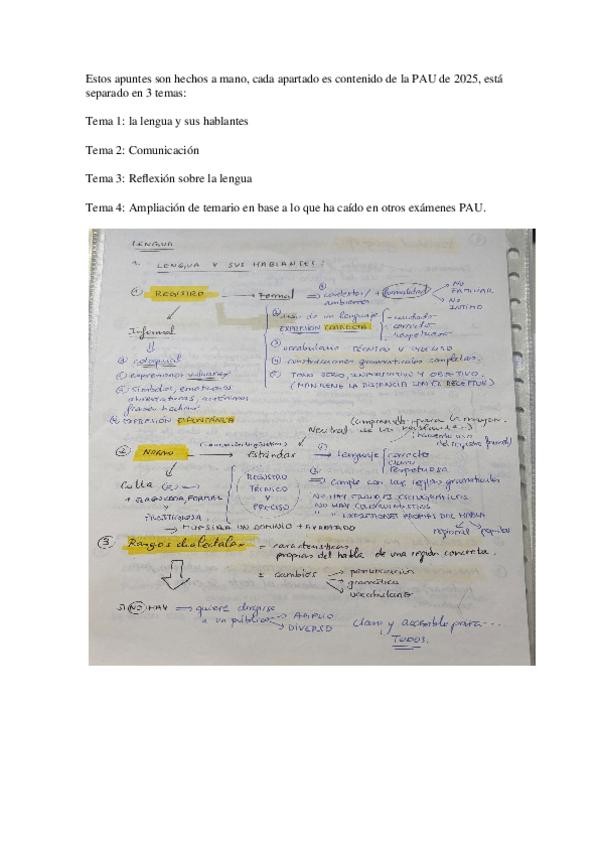 Estos apuntes son hechos a mano, cada apartado es contenido de la PAU de 2025, está
separado en 3 temas:
Tema 1: la lengua y sus hablantes
Tema 2: Comunicación
Tema 3: Reflexión sobre la lengua
Tema 4: Ampliación de temario en base a lo que ha caído en otros exámenes PAU.
LENGUA
1. LENGUA Y SUS HABLANTES:
① REGISTRO → Formal ⇒ contexto/ambiente + formalidad
NO FAMILIAR
NO ÍNTIMO
② uso de un lenguaje
EXPRESIÓN CORRECTA
cuidado
correcto
respetuoso
③ vocabulario TÉCNICO Y
④ construcciones gramaticales completas.
⑤ TONO SERIO, INFORMATIVO Y OBJETIVO.
(MANTIENE LA DISTANCIA CON EL RECEPTOR)
Informal
coloquial
expresiones vulgares
símbolos, emoticonos
abreviaturas, acrónimos
frases hechas
EXPRESIÓN ESPONTÁNEA
② NORMA → estándar
Neutral
① Lenguaje
correcto
claro
respetuoso
② cumple con las reglas gramaticales
NO HAY ERRORES ORTOGRÁFICOS
NO HAY COLOQUIALISMOS
" " EXPRESIONES PROPIAS DEL HABLA
regional
popular
Culta
+ ELABORADA, FORMAL
Y
PRESTIGIOSA
REGISTRO
TÉCNICO
Y
PRECISO
→ MUESTRA UN DOMINIO + AVANZADO
③ Rasgos dialectales = características
propias del habla de una región concreta.
= cambios
pronunciación
gramática
vocabulario
SI NO HAY → quiere dirigirse
a un público
AMPLIO
DIVERSO
claro y accesible para...
TODOS.